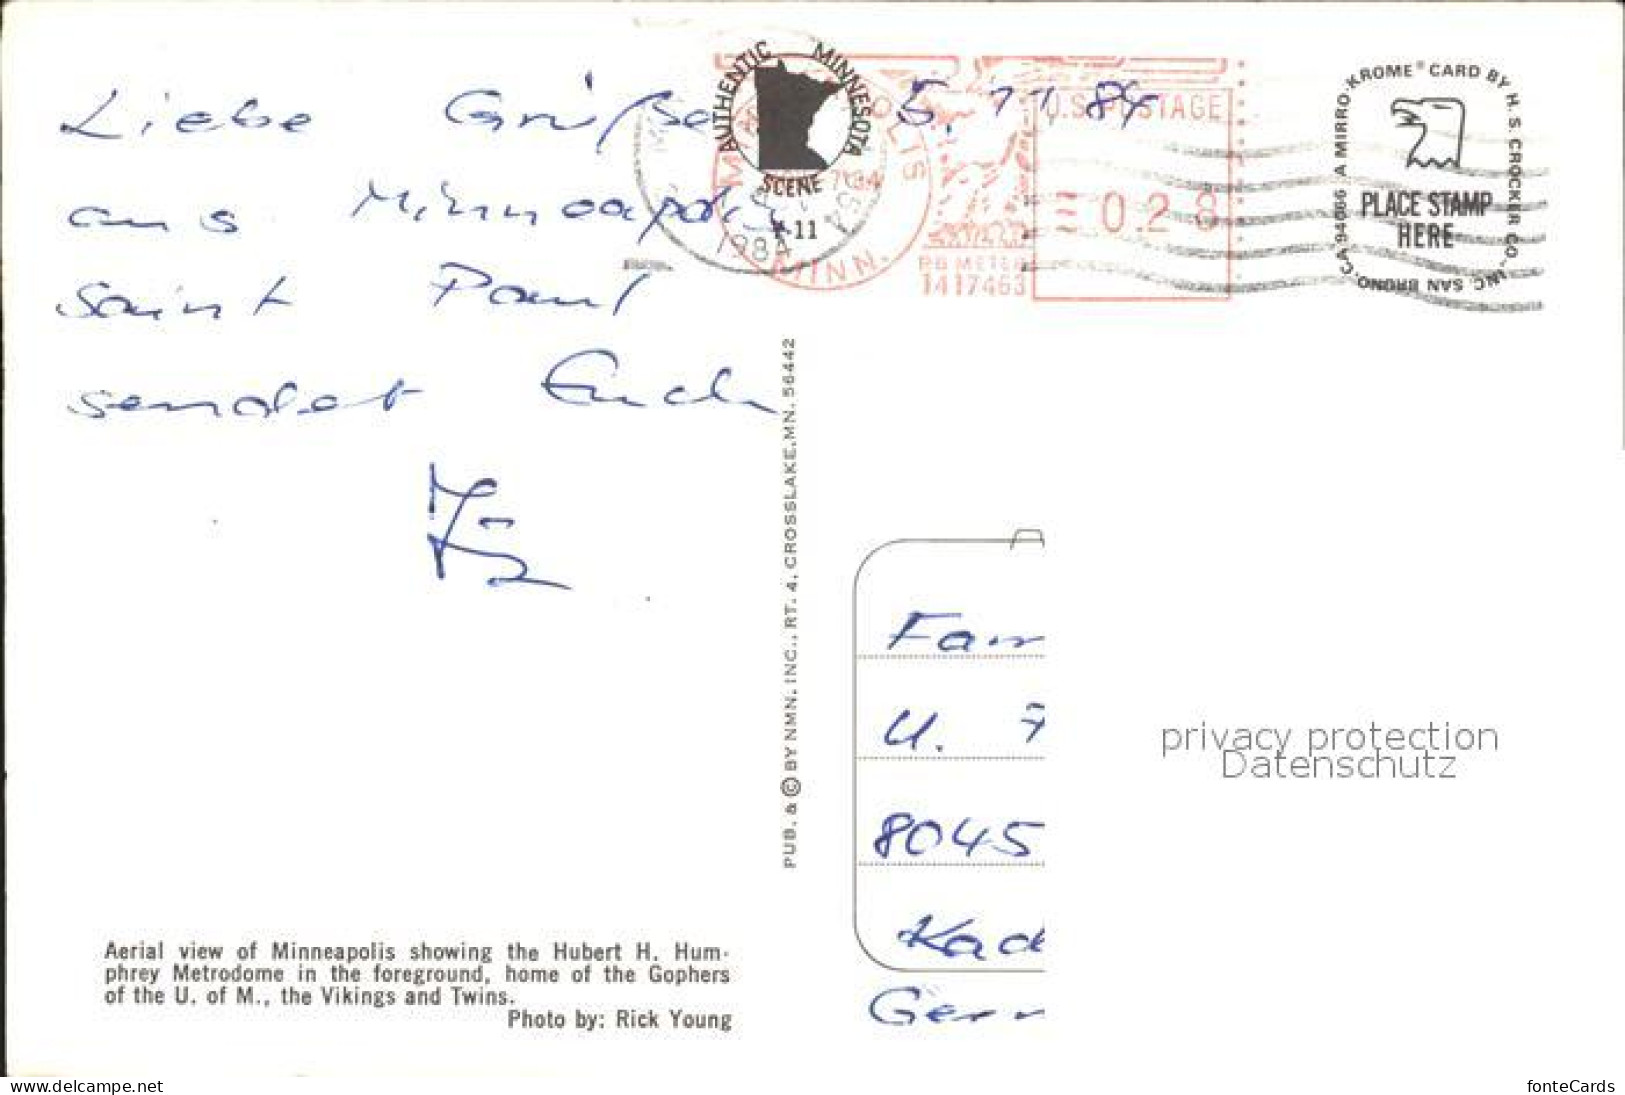 Liebe Grüße
5.11.84
aus Minneapolis
Saint Paul
sendet Euch
AUTHENTIC MINNESOTA
SCENE
K-11
1984
MINN.
PB METER
1417463
U.S. POSTAGE
028
KROME® CARD BY H. S. CROCKER CO., INC. SAN BRUNO, CA 94066 A MIRRO-
PLACE STAMP
HERE
PUB. & © BY NMN, INC., RT. 4, CROSSLAKE, MN. 56442
Fam
U.
8045
Gerr
privacy protection
Datenschutz
Aerial view of Minneapolis showing the Hubert H. Hum-
phrey Metrodome in the foreground, home of the Gophers
of the U. of M., the Vikings and Twins.
Photo by: Rick Young
www.delcampe.net
fonteCards